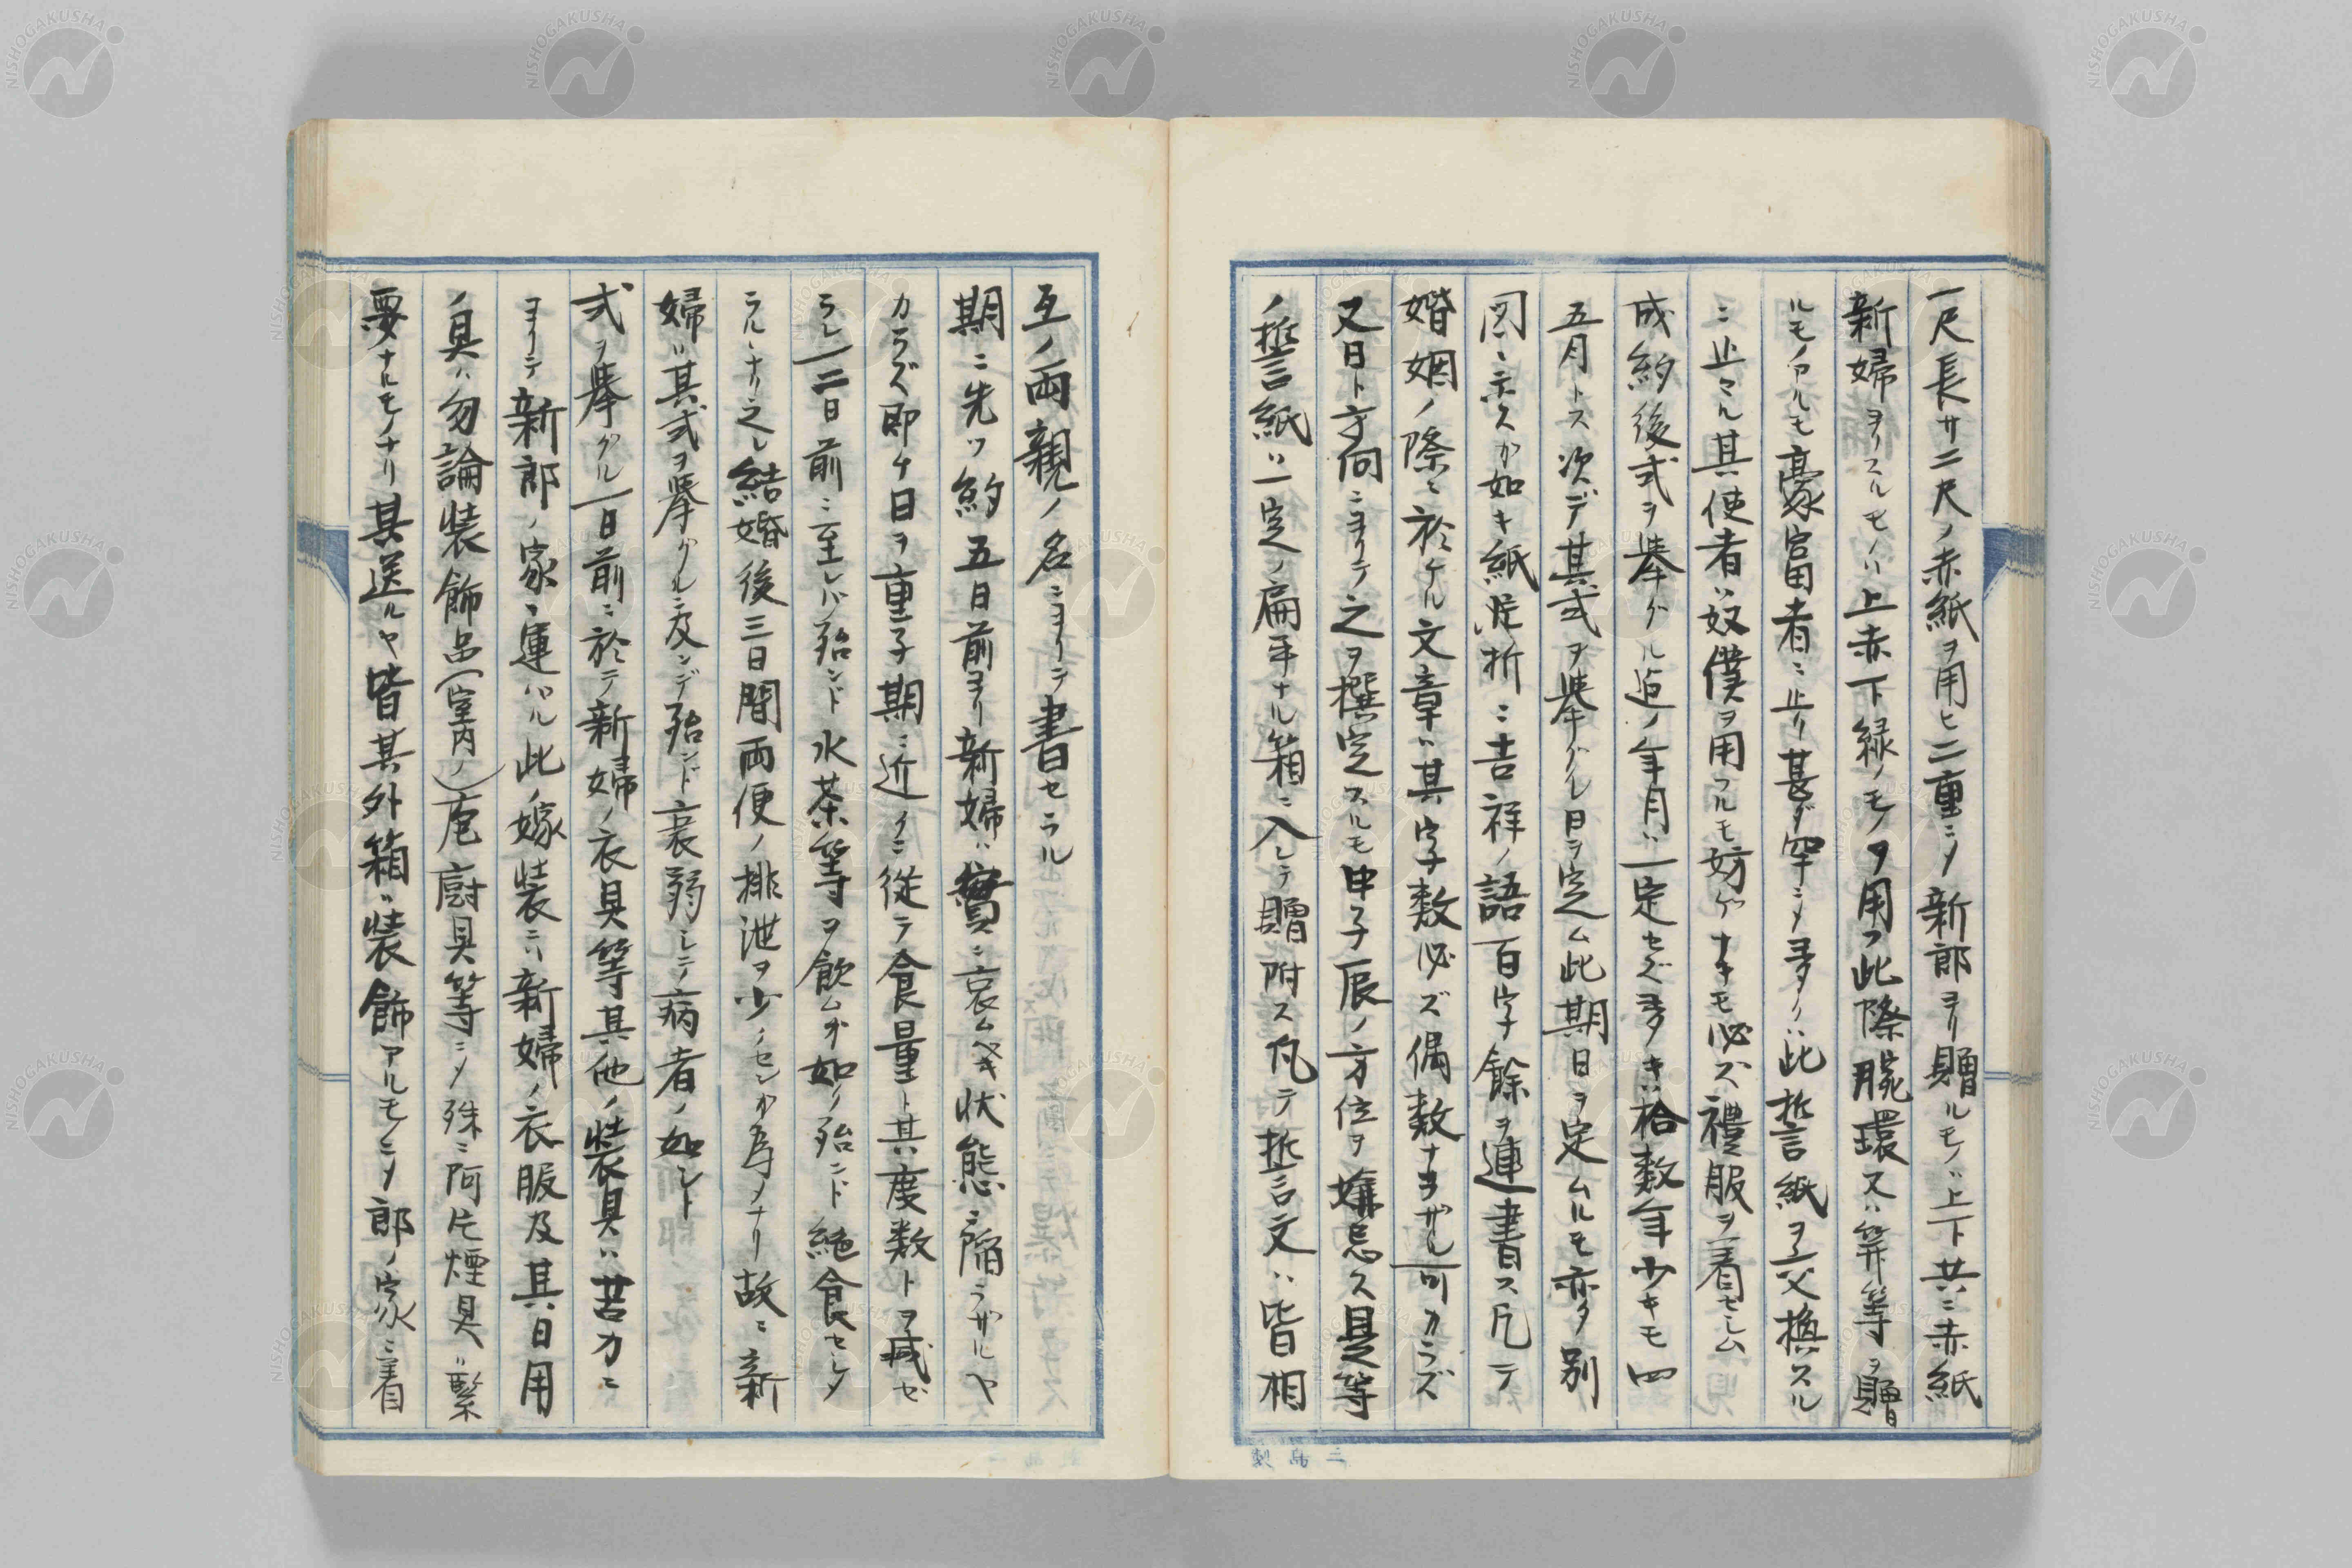 一尺長サ二尺ノ赤紙ヲ用ヒ二重ニシ新郎ヨリ贈ルモノハ上下共ニ赤紙
新婦ヨリスルモノハ上赤下緑ノモノヲ用フ此際腕環又ハ笄等ヲ贈
ルモノアルモ豪富者ニ止リ甚ダ罕ニシ多クハ此誓紙ヲ交換スル
ニ止マル其使者ハ奴僕ヲ用フルモ妨ゲナキモ必ズ禮服ヲ着セシム
成約後式ヲ擧グル迠ノ年月ハ一定セズ多キハ拾数年少キモ四
五月トス次デ其式ヲ擧グル日ヲ定ム此期日ヲ定ムルモ亦タ別
図ニ示スカ如キ紙片折ニ吉祥ノ語百字餘ヲ連書ス凡テ
婚姻ノ際ニ於ケル文章ハ其字数必ズ偶数ナラザル可カラズ
又日ト方向ニヨリテ之ヲ撰定スルモ申子辰ノ方位ヲ嫌忌ス是等
ノ誓紙ハ一定ノ扁平ナル箱ニ入レテ贈附ス凡テ誓言文ハ皆相
互ノ両親ノ名ニヨリテ書セラル
期ニ先ツ約五日前ヨリ新婦ハ實ニ哀ムベキ状態ニ陥ラザルヤ
カラズ即ケ日ヲ重子期ニ近クニ從テ食量ト其度数トヲ减ゼ
ラレ一二日前ニ至レバ殆ンド水茶等ヲ飲ムガ如リ殆ンド絶食セシメ
ラル丶ナリ之レ結婚後三日間両便ノ排泄ヲ少ノセンガ為ノナリ故ニ新
婦ハ其式ヲ擧グルニ及ンデ殆ンド衰弱シテ病者ノ如シト
式ヲ擧グル一日前ニ於テ新婦ノ衣具等其他ノ装具ハ苦力ニ
ヨリテ新郎ノ家ニ運バル此ノ嫁装ニハ新婦ノ衣服及其日用
ノ具ハ勿論装飾品(室内ノ)庖廚具等ニシ殊ニ阿片煙具ハ緊
要ナルモノナリ其送ルヤ皆其外箱ハ装飾アルモニシ郎ノ家ニ着